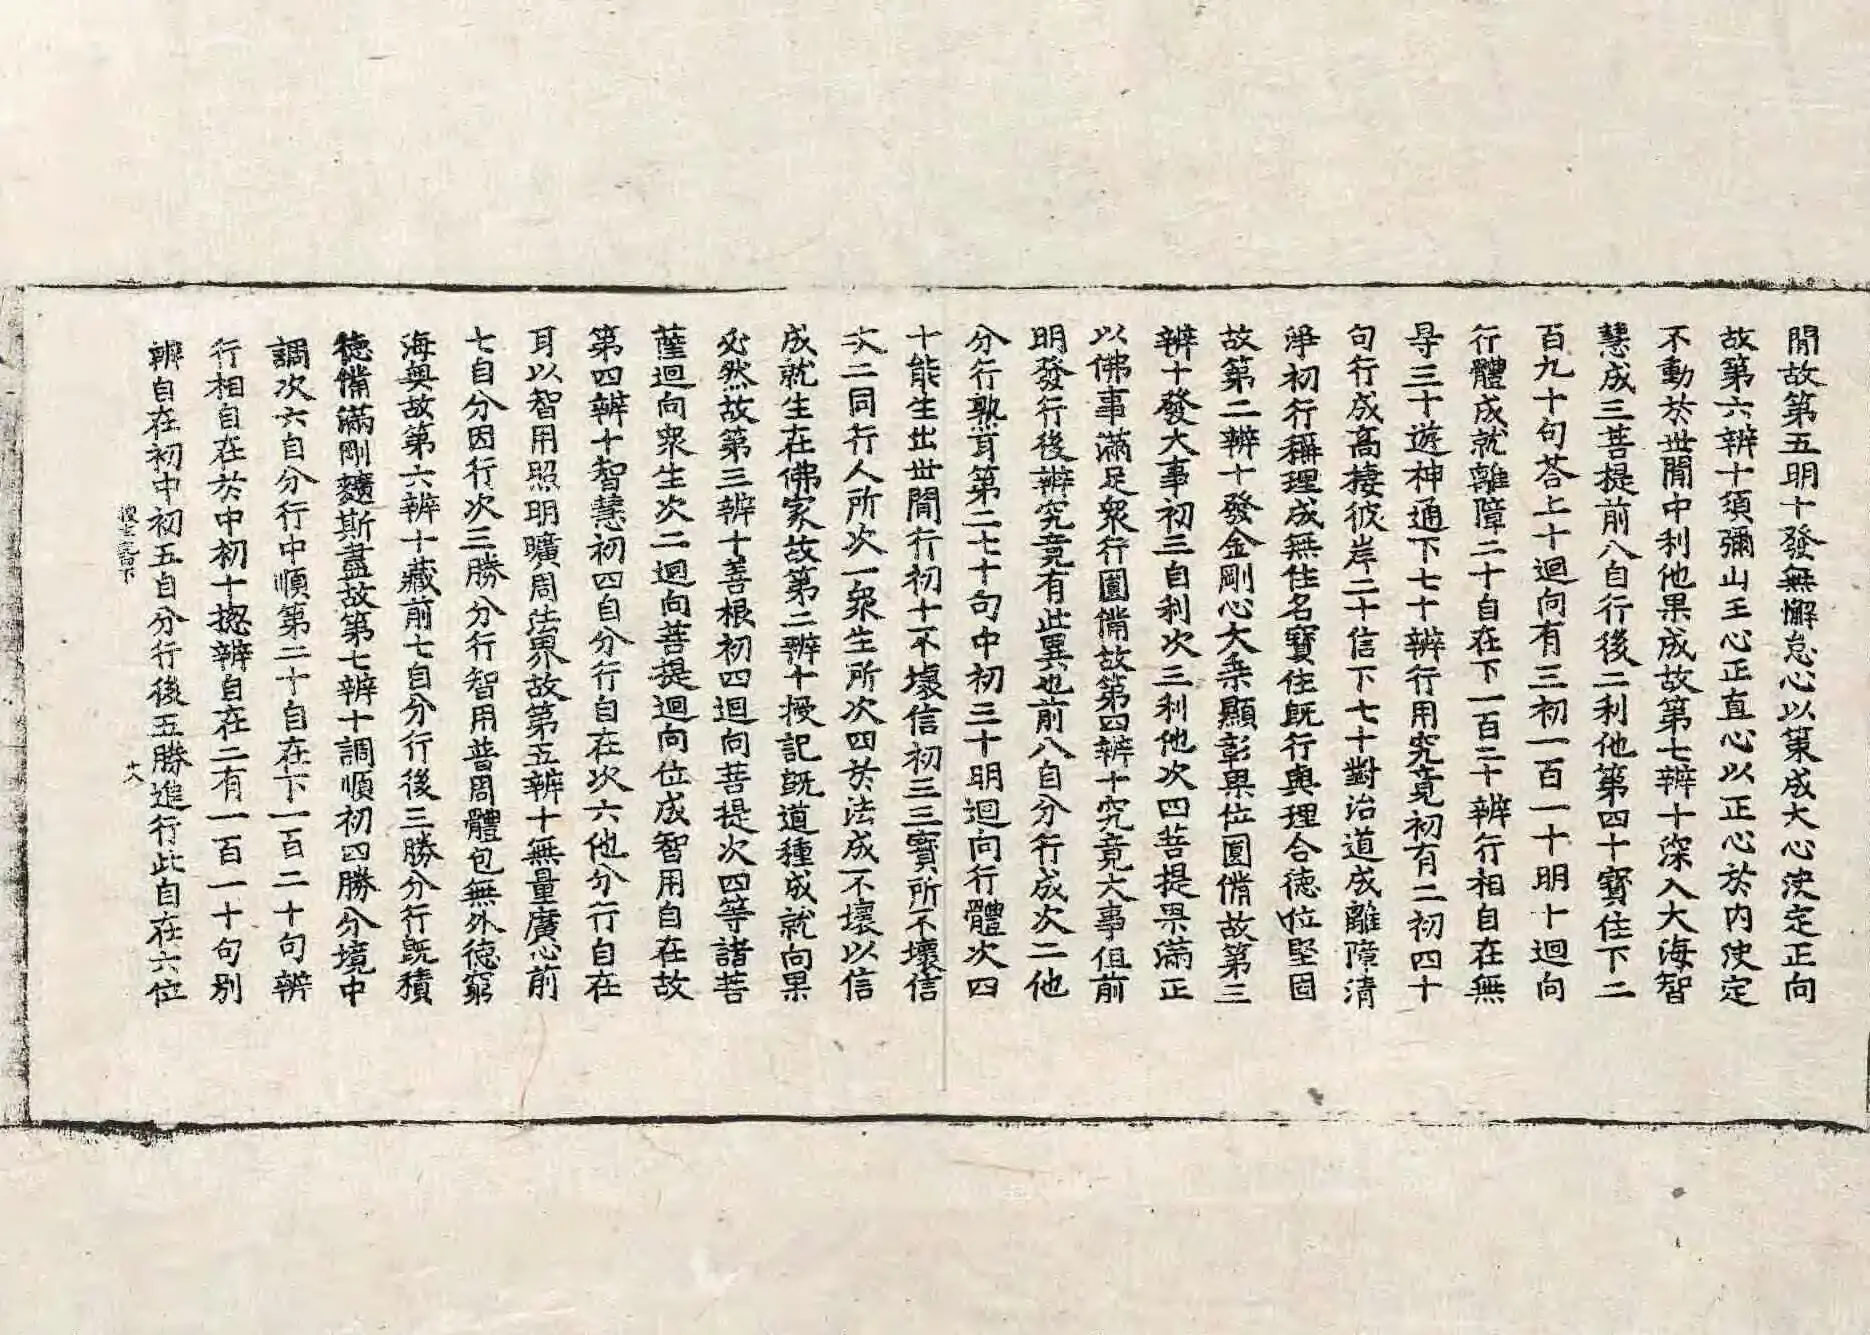 閒故第五明十發無懈怠心以策成大心決定正向
故第六辨十須彌山王心正直心以正心於內決定
不動於世閒中利他果成故第七辨十深入大海智
慧成三菩提前八自行後二利他第四十寶住下二
百九十句荅上十迴向有三初一百一十明十迴向
行體成就離障二十自在下一百二十辨行相自在無
㝵三十遊神通下七十辨行用究竟初有二初四十
句行成高棲彼岸二十信下七十對治道成離障清
淨初行稱理成無住名寶住既行與理合德位堅固
故第二辨十發金剛心大乘顯彰果位圓備故第三
辨十發大事初三自利次三利他次四菩提果滿正
以佛事滿足衆行圓備故第四辨十究竟大事但前
明發行後辨究竟有此異也前八自分行成次二他
分行熟耳第二七十句中初三十明迴向行體次四
十能生出世閒行初十不壞信初三三寶所不壞信
次二同行人所次一衆生所次四於法成不壞以信
成就生在佛家故第二辨十授記既道種成就向果
必然故第三辨十善根初四迴向菩提次四等諸菩
薩迴向衆生次二迴向菩提迴向位成智用自在故
第四辨十智慧初四自分行自在次六他分行自在
耳以智用照明曠周法界故第五辨十無量廣心前
七自分因行次三勝分行智用普周體包無外德窮
海奧故第六辨十藏前七自分行後三勝分行既積
德備滿剛麤斯盡故第七辨十調順初四勝分境中
調次六自分行中順第二十自在下一百二十句辨
行相自在於中初十揔辨自在二有一百一十句別
辨自在初中初五自分行後五勝進行此自在六位
卄八